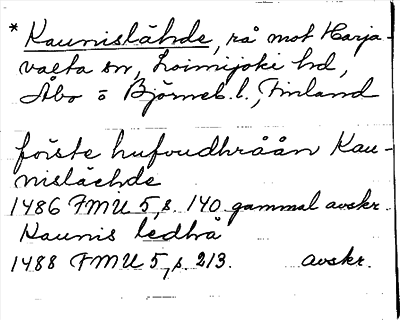 * Kaunislähde, rå mot Harja-
valta sn, Loimijoki hd,
Åbo o Björneb. l., Finland
förste hufvudhråån Kau-
nislächde
1486 FMU 5, s. 140. gammal avskr.
Kaunis ledhå
1488 FMU 5, s. 213. avskr.